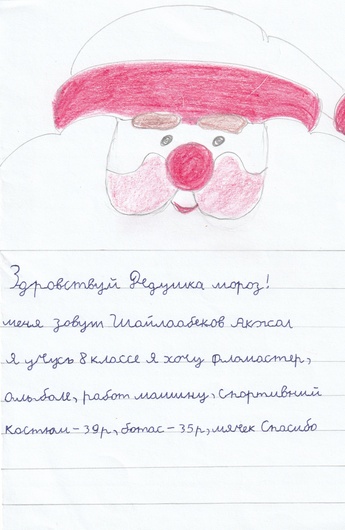 Здравствуй Дедушка мороз!
меня зовут Шайлаабеков Акжол
Я учусь 8 классе Я хочу фламастер,
алььбале, работ машину, спортивний
костюм – 39р, ботас – 35р, мячек Спасибо